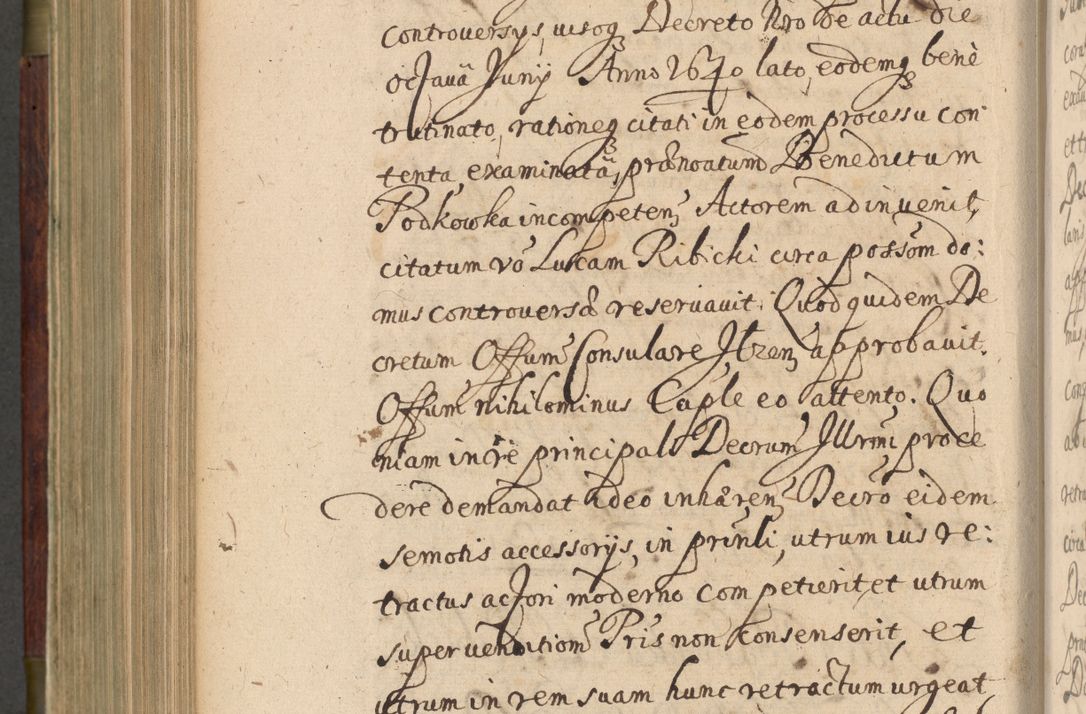 controversys, visoq Decreto Nro de actu die
octava Juny Anno 1640 lato, eodemq bene
trutinato, rationeq citati in eodem processu con
tenta examinata, prænoatum Benedictum
Podkowka incompetenz Actorem adinvenit,
citatum vo Lucam Ribicki circa possom do:
mus controversæ reservavit. Quod quidem De
cretum Offum Consulare Itzenz approbavit.
Offum nihilominus Caple eo attento. Quo
niam in re principali Decrum Illrmi proce
dere demandat ideo inhærenz Decro eidem
semotis accessorijs, in prinli, utrum ius re:
tractus actori moderno competierit, et utrum
super venditiom Pris non consenserit, et
utrum in rem suam hunc retractum urgeat,